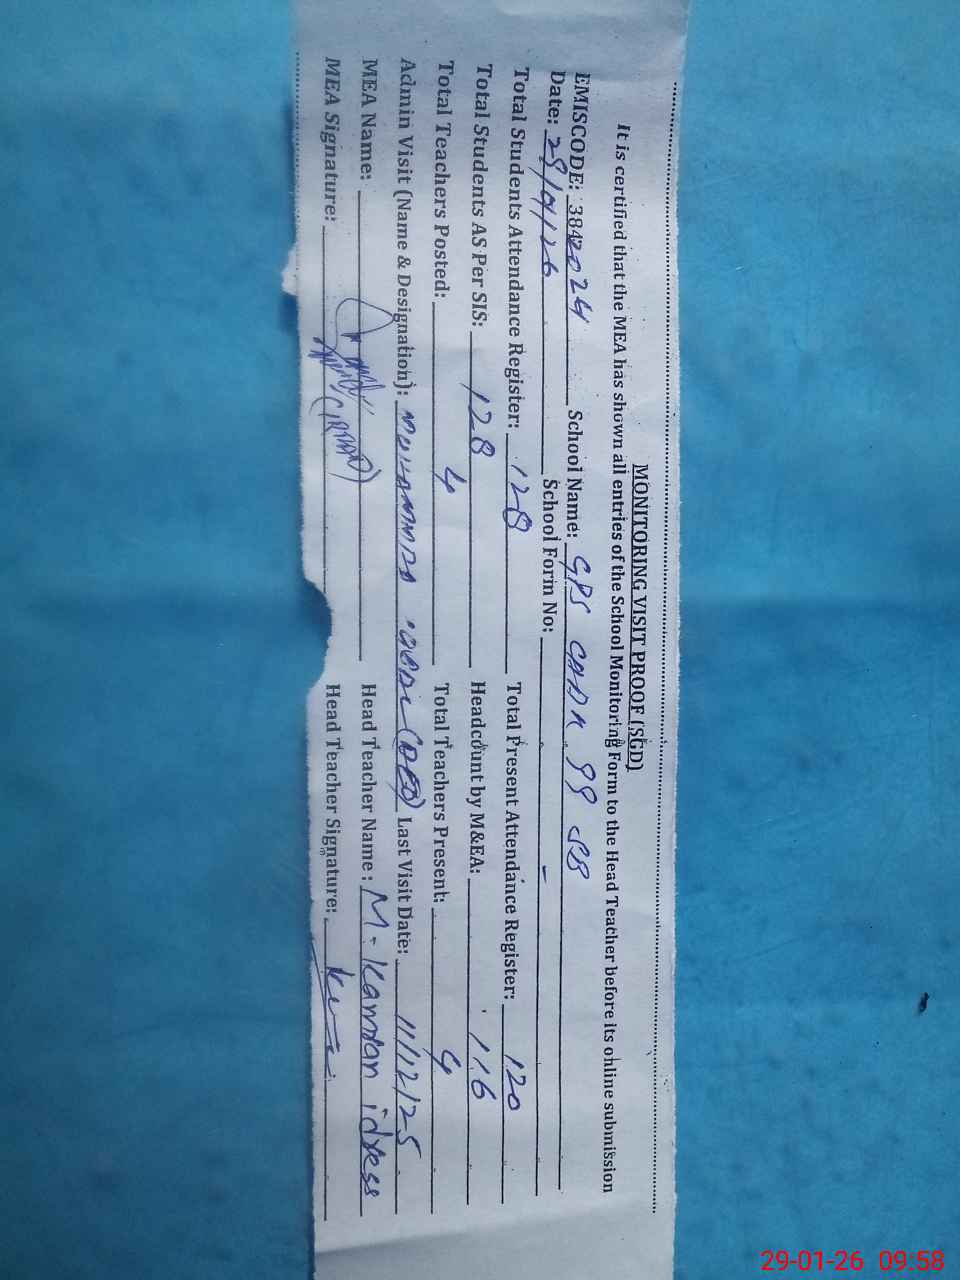 MONITORING VISIT PROOF (SGD)
It is certified that the MEA has shown all entries of the School Monitoring Form to the Head Teacher before its online submission
EMISCODE: 3842024 School Name: GPS CHAK 99 SB
Date: 29/01/26 School Form No: -
Total Students Attendance Register: 128 Total Present Attendance Register: 120
Total Students AS Per SIS: 128 Headcount by M&EA: 116
Total Teachers Posted: 4 Total Teachers Present: 4
Admin Visit (Name & Designation): MUHAMMAD (AEO) Last Visit Date: 11/12/25
MEA Name: Head Teacher Name : M. Kamran idress
MEA Signature: Head Teacher Signature:
29-01-26 09:58